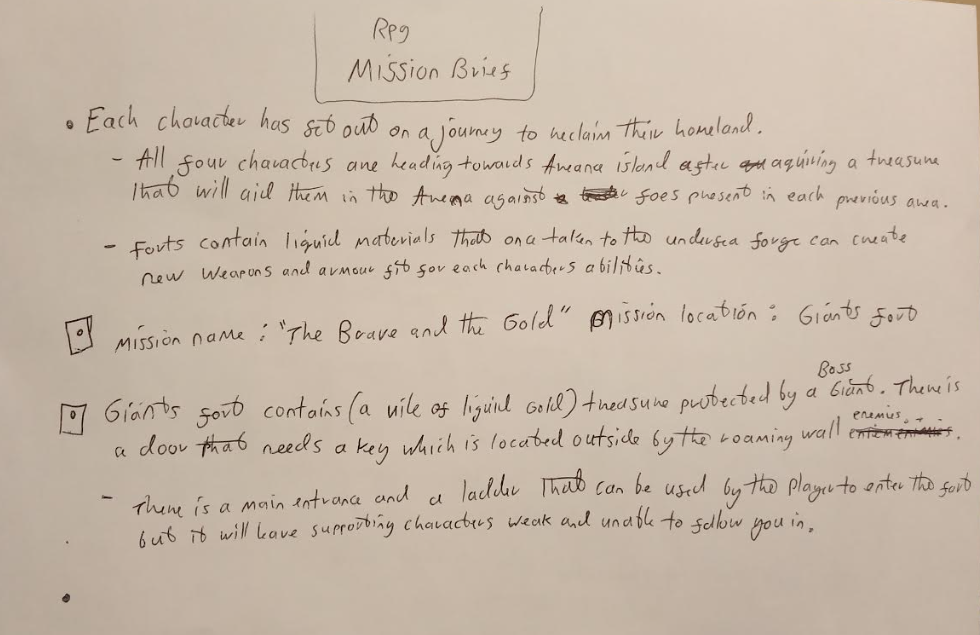 Rpg
Mission Brief
• Each character has set out on a journey to reclaim their homeland.
- All four characters are heading towards Areana island after aquiring a treasure
that will aid them in the Arena against foes present in each previous area.
- Forts contain liquid materials that once taken to the undersea forge can create
new weapons and armour fit for each characters abilities.
Mission name : "The Brave and the Gold" Mission location : Giants fort
Boss
Giants fort contains (a vile of liquid Gold) treasure protected by a Giant. There is
enemies.
a door that needs a key which is located outside by the roaming wall
- There is a main entrance and a ladder that can be used by the player to enter the fort
but it will leave supporting characters weak and unable to follow you in.
•